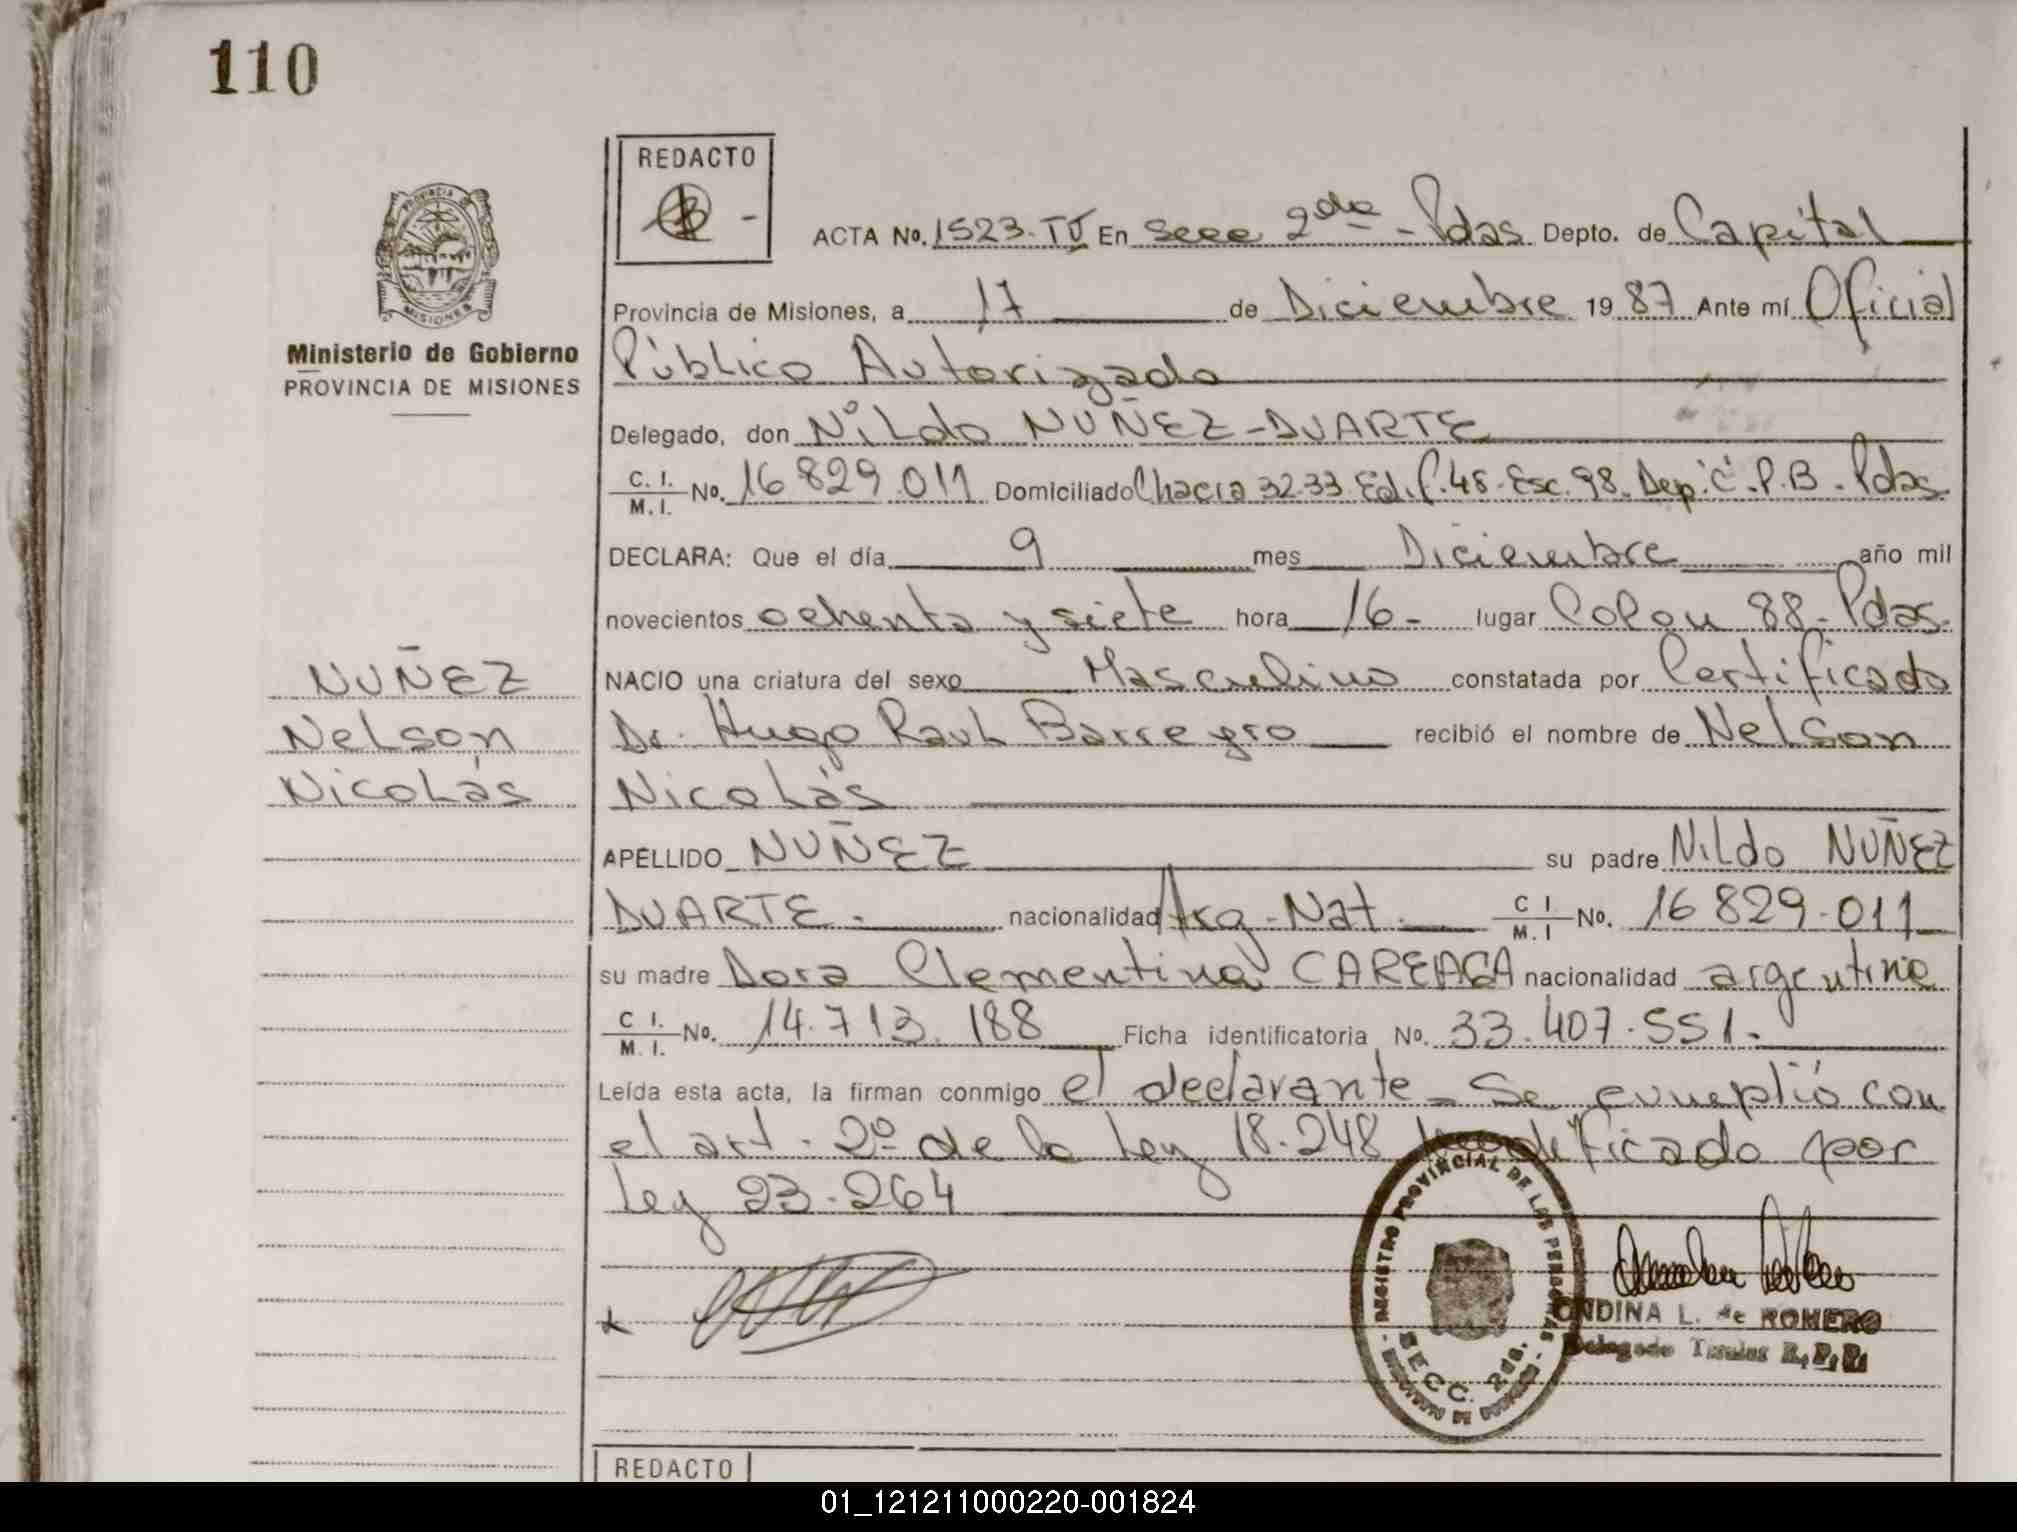 110
REDACTO
ACTA No. 1523. TV En Secc 2da - Pdas Depto. de Capital
Provincia de Misiones, a 17 de Diciembre 1987 Ante mí Oficial
PROVINCIA
MISIONES
Ministerio de Gobierno
PROVINCIA DE MISIONES
Público Autorizado
Delegado, don Nildo NUÑEZ-DUARTE
C. I. M. I. No. 16 829.011 Domiciliado Chacra 32.33. Edif. 45. Esc. 98. Dep. "C". P.B. Pdas.
DECLARA: Que el día 9 mes Diciembre año mil
novecientos ochenta y siete hora 16- lugar Colon 88- Pdas.
NUÑEZ
NACIO una criatura del sexo Masculino constatada por Certificado
Nelson
Dr. Hugo Raul Barreyro recibió el nombre de Nelson
Nicolás
Nicolás
APELLIDO NUÑEZ su padre Nildo NUÑEZ
DUARTE. nacionalidad Arg. Nat. C I. M. I No. 16 829.011
su madre Dora Clementina CAREAGA nacionalidad argentina
C I. M. I. No. 14.713.188 Ficha identificatoria No. 33.407.551.
Leída esta acta, la firman conmigo el declarante - Se cumplió con
el art. 2º de la Ley 18.248 modificado por
Ley 23.264
REGISTRO PROVINCIAL DE LAS PERSONAS
SECC. 2da.
ONDINA L. de ROMERO
Delegado Titular R.P.P.
REDACTO
01_121211000220-001824